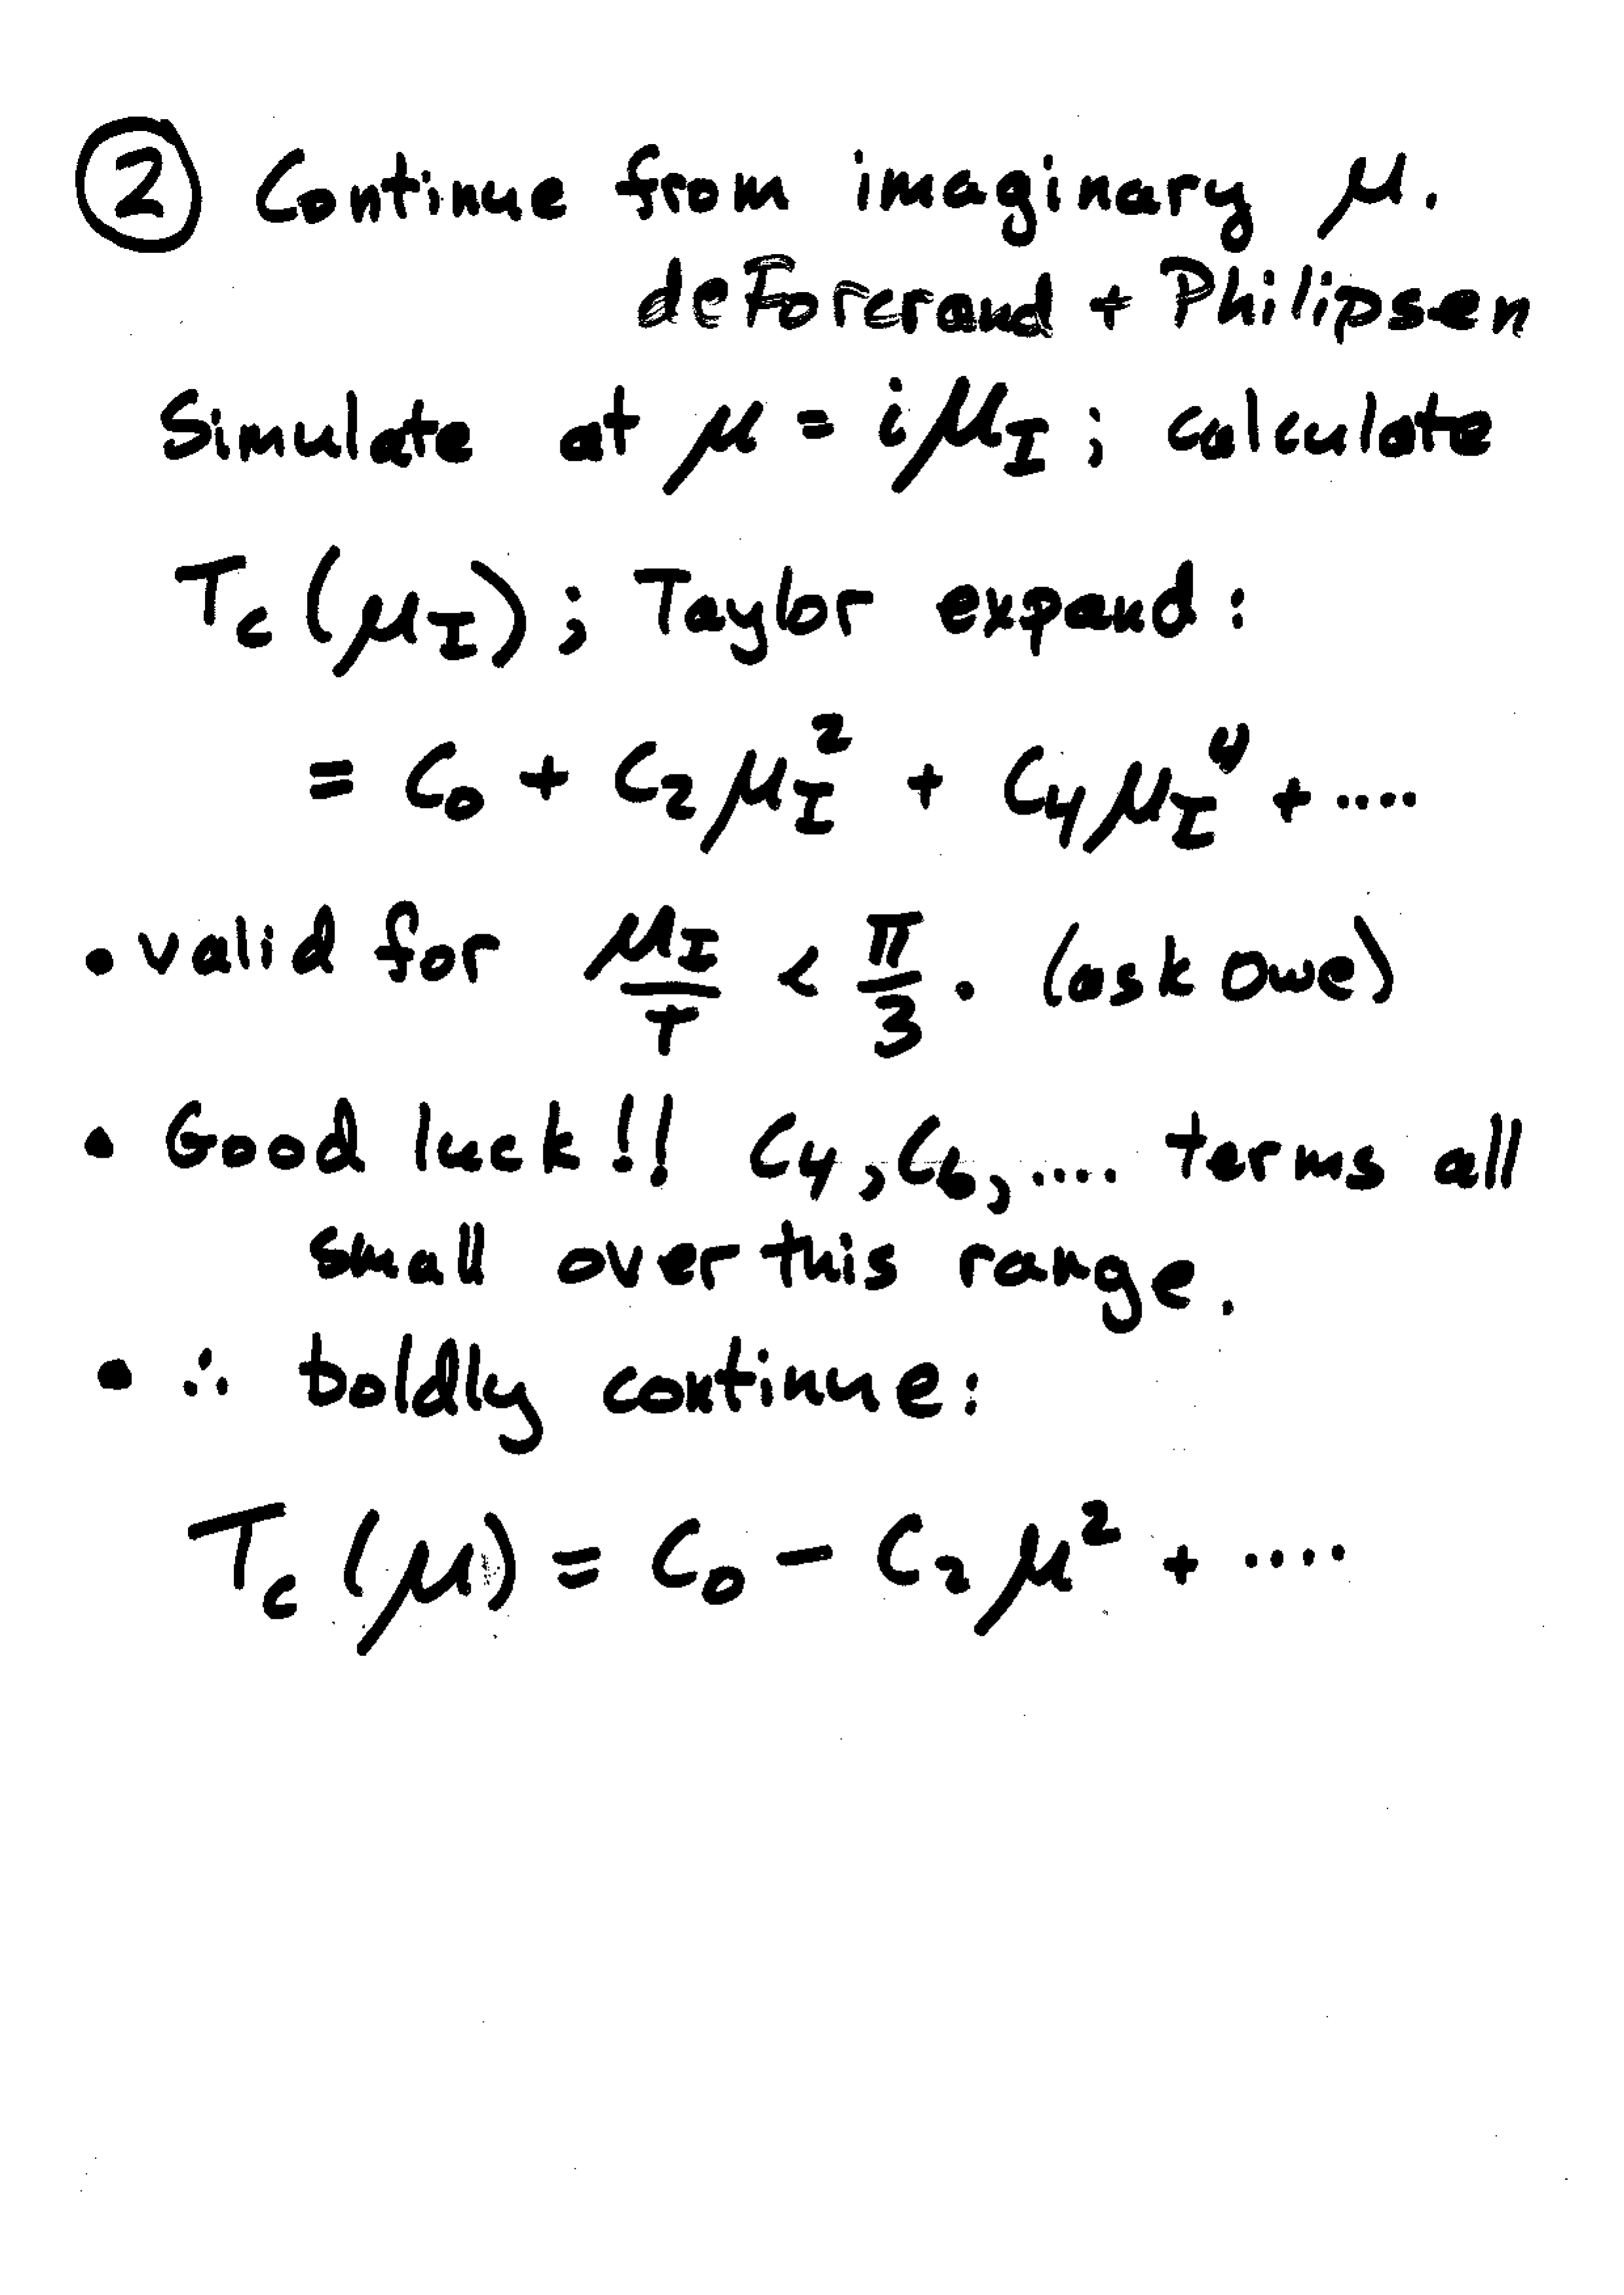 ② Continue from imaginary μ.
deForcrand + Philipsen
Simulate at μ = iμ_I ; calculate
T_c (μ_I) ; Taylor expand :
= C_0 + C_2 μ_I^2 + C_4 μ_I^4 + ....
• valid for μ_I/T < π/3 . (ask Owe)
• Good luck!! C_4, C_6, .... terms all
small over this range.
• ∴ boldly continue:
T_c (μ) = C_0 − C_2 μ^2 + ....